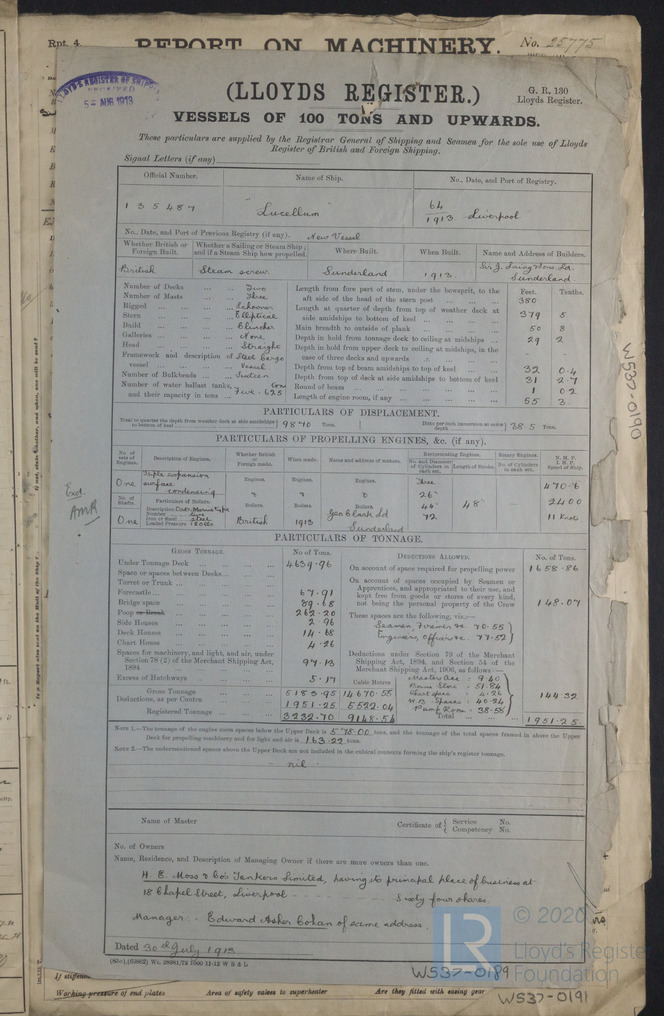 Rpt. 4.
REPORT ON MACHINERY.
No. 25775
LLOYD'S REGISTER OF SHIPPING
RECEIVED
5 AUG 1913
(LLOYDS REGISTER.)
G. R. 130
Lloyds Register.
VESSELS OF 100 TONS AND UPWARDS.
These particulars are supplied by the Registrar General of Shipping and Seamen for the sole use of Lloyds
Register of British and Foreign Shipping.
Signal Letters (if any)
Official Number. Name of Ship. No., Date, and Port of Registry.
135487 "Lucellum" 64 1913 Liverpool
No., Date, and Port of Previous Registry (if any). New Vessel
Whether British or Foreign Built. Whether a Sailing or Steam Ship; and if a Steam Ship how propelled. Where Built. When Built. Name and Address of Builders.
British Steam screw. Sunderland 1913 Sir J. Laing & Sons. Ld. Sunderland
Number of Decks ... Two
Number of Masts ... Three
Rigged ... Schooner
Stern ... Elliptical
Build ... Clincher
Galleries ... None
Head ... Straight
Framework and description of vessel ... Steel Cargo Vessel
Number of Bulkheads ... Sixteen
Number of water ballast tanks, and their capacity in tons ... Five. 625 tons
Feet. Tenths.
Length from fore part of stem, under the bowsprit, to the aft side of the head of the stern post 380
Length at quarter of depth from top of weather deck at side amidships to bottom of keel 379 5
Main breadth to outside of plank 50 8
Depth in hold from tonnage deck to ceiling at midships 29 2
Depth in hold from upper deck to ceiling at midships, in the case of three decks and upwards
Depth from top of beam amidships to top of keel 32 0.4
Depth from top of deck at side amidships to bottom of keel 31 2.7
Round of beam 1 02
Length of engine room, if any 55 3
PARTICULARS OF DISPLACEMENT.
Total to quarter the depth from weather deck at side amidships to bottom of keel 9870 Tons.
Ditto per inch immersion at same depth 38.5 Tons.
PARTICULARS OF PROPELLING ENGINES, &c. (if any).
No. of sets of Engines. Description of Engines. Whether British or Foreign made. When made. Name and address of makers. Reciprocating Engines. No. and Diameter of Cylinders in each set. Length of Stroke. Rotary Engines. No. of Cylinders in each set. N.H.P. I.H.P. Speed of Ship.
One Triple expansion surface condensing Engines. Engines. Engines. Three 470.6
No. of Shafts. Particulars of Boilers. Boilers. Boilers. Boilers. 26" 44" 72 48" 2400
One Number Iron or Steel steel Loaded Pressure 180 lbs British 1913 Geo Clark Ld Sunderland 11 Knots
PARTICULARS OF TONNAGE.
GROSS TONNAGE. No. of Tons.
Under Tonnage Deck 4639.96
Space or spaces between Decks
Turret or Trunk
Forecastle 67.91
Bridge space 89.68
Poop or Break 262.20
Side Houses 2.96
Deck Houses 14.68
Chart House 4.26
Spaces for machinery, and light, and air, under Section 78 (2) of the Merchant Shipping Act, 1894 97.13
Excess of Hatchways 5.17
Cubic Metres
Gross Tonnage 5183.95 14670.55
Deductions, as per Contra 1951.25 5522.04
Registered Tonnage 3232.70 9148.54
DEDUCTIONS ALLOWED. No. of Tons.
On account of space required for propelling power 1658.86
On account of spaces occupied by Seamen or Apprentices, and appropriated to their use, and kept free from goods or stores of every kind, not being the personal property of the Crew 148.07
These spaces are the following, viz.:—
Seamen, Firemen &c. 70.55
Engineers, Officers &c. 77.52
Deductions under Section 79 of the Merchant Shipping Act, 1894, and Section 54 of the Merchant Shipping Act, 1906, as follows:—
Master Acc: 9.40
Bosuns Store - 51.84
Chart space 4.26
W.B. Spaces: 40.24
Pump Room 38.58
144.32
Total 1951.25
NOTE 1.—The tonnage of the engine room spaces below the Upper Deck is 575.00 tons, and the tonnage of the total spaces framed in above the Upper
Deck for propelling machinery and for light and air is 163.22 tons.
NOTE 2.—The undermentioned spaces above the Upper Deck are not included in the cubical contents forming the ship's register tonnage.
nil
Name of Master
Certificate of { Service No. Competency No.
No. of Owners
Name, Residence, and Description of Managing Owner if there are more owners than one.
H. E. Moss & Co's Tankers Limited, having its principal place of business at
18 Chapel Street, Liverpool - Sixty four shares.
Manager - Edward Asher Cohan of same address.
Dated 30th July 1913
© 2020
LR
Lloyd's Register
Foundation
W537-0189
W537-0190
W537-0191
Working pressure of end plates Area of safety valves to superheater Are they fitted with easing gear